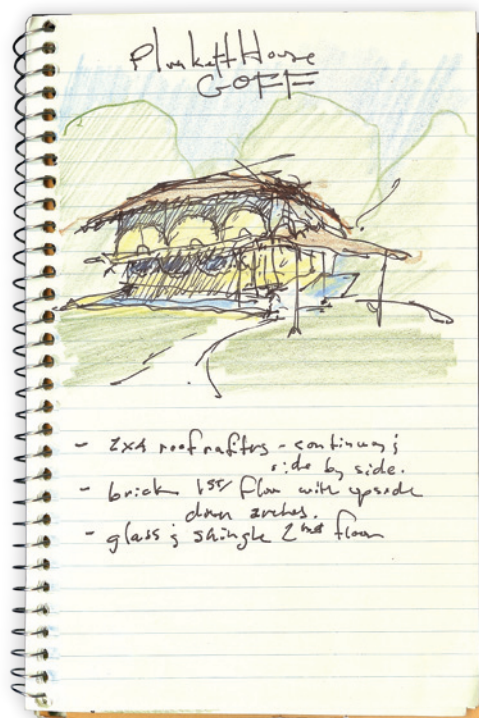 Plunkett House
GOFF
- 2x4 roof rafters - continuous &
side by side.
- brick 1st/ floor with upside
down arches.
- glass & shingle 2nd floor